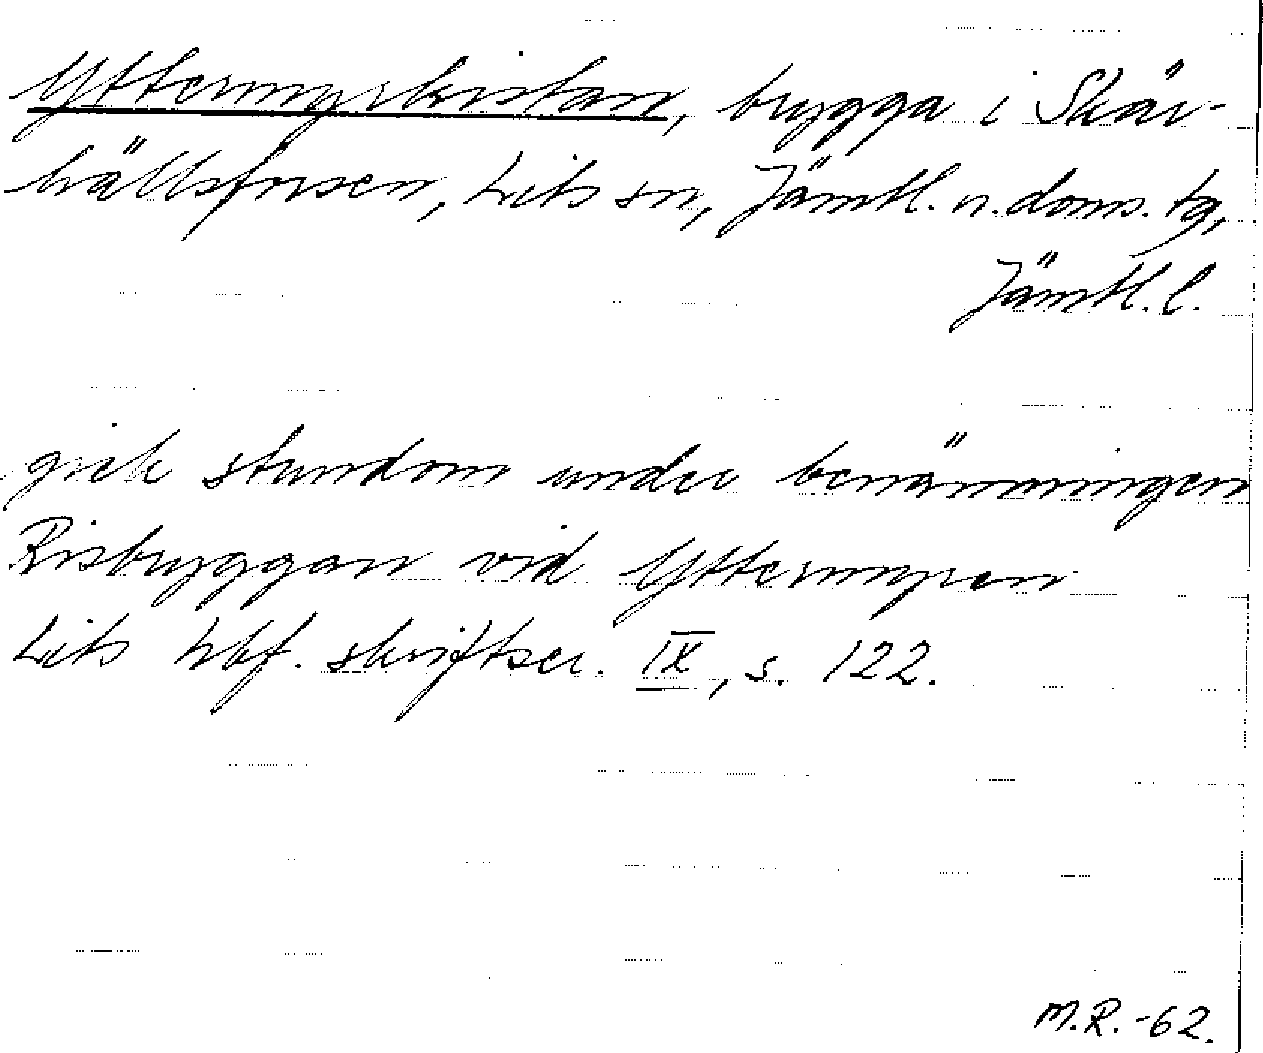 Yttermyrkistan, brygga i Skär-
hällsforsen, Lits sn, Jämtl. n. doms. tg,
Jämtl. l.
gick stundom under benämningen
Risbryggan vid Yttermyren
Lits hbf. skriftser. IX, s. 122.
M.R. -62.